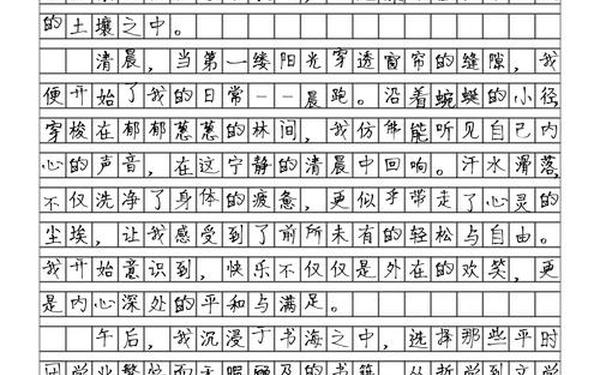 的土壤之中。
清晨，当第一缕阳光穿透窗帘的缝隙，我
便开始了我的日常——晨跑。沿着蜿蜒的小径
穿梭在郁郁葱葱的林间，我仿佛能听见自己内
心的声音，在这宁静的清晨中回响。汗水滑落，
不仅洗净了身体的疲惫，更似乎带走了心灵的
尘埃，让我感受到了前所未有的轻松与自由。
我开始意识到，快乐不仅仅是外在的欢笑，更
是内心深处的平和与满足。
午后，我沉浸于书海之中，选择那些平时
因学业繁忙而无暇顾及的书籍。从哲学到文学